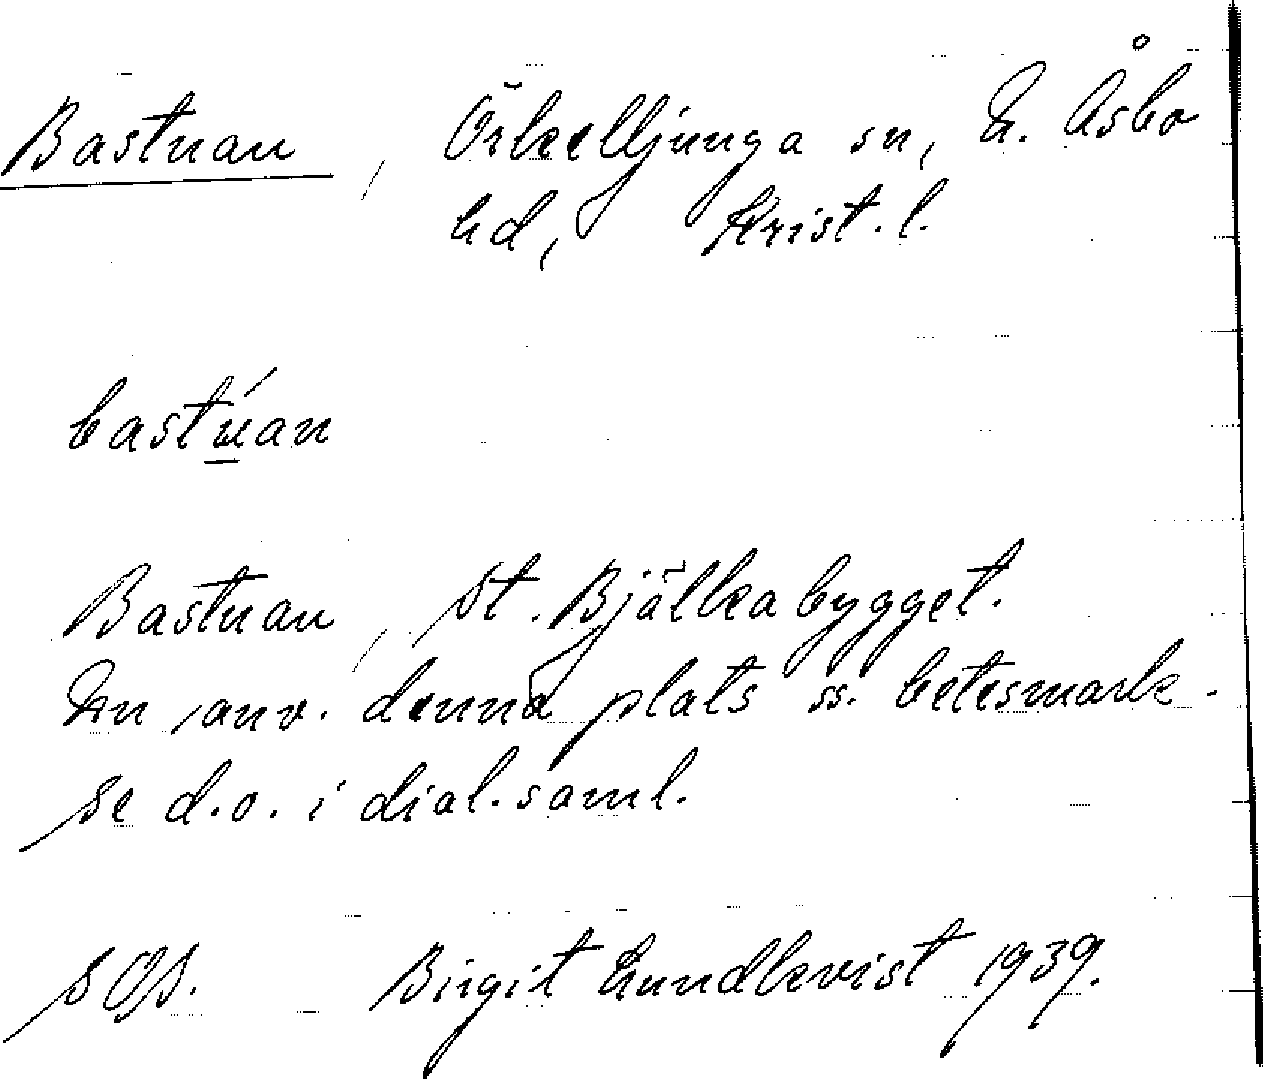 Bastuan, Örkelljunga sn, N. Åsbo
hd, Krist. l.
bastúan
Bastuan, St. Bjälkabygget.
Nu anv. denna plats ss. betesmark.
Se d.o. i dial.saml.
SOS. Birgit Lundkvist 1939.